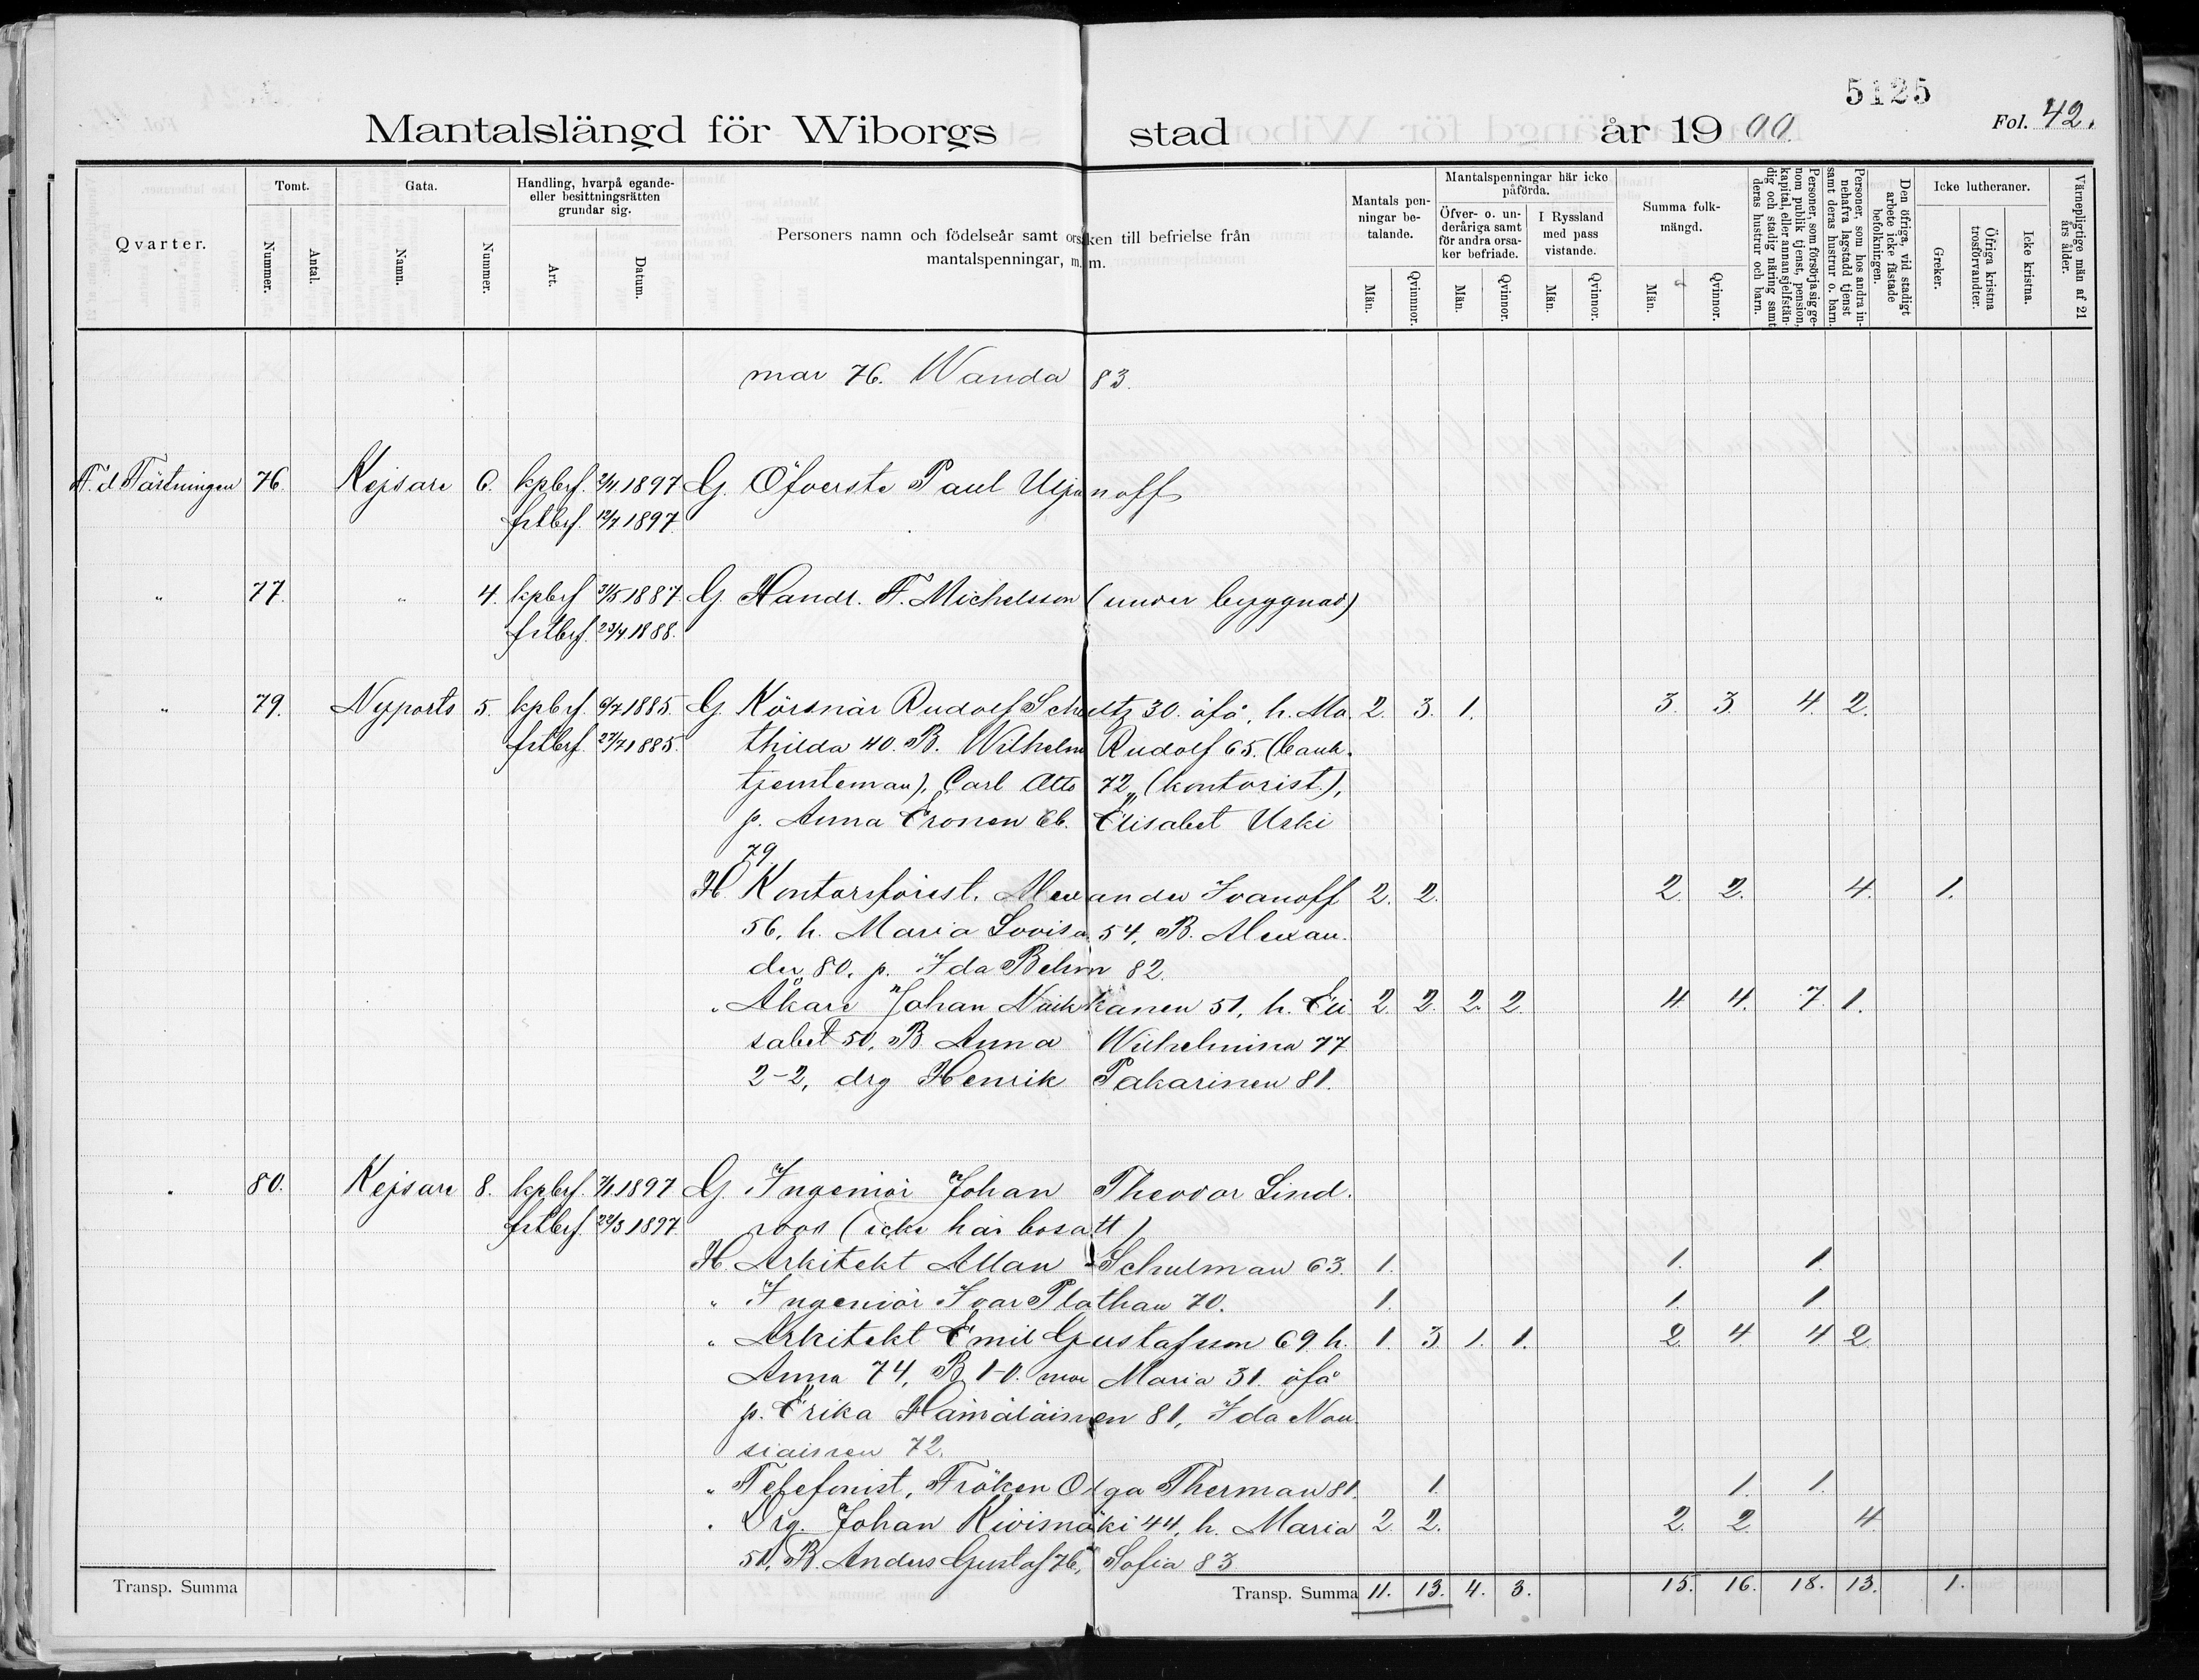 5125
Mantalslängd för Wiborgs stad år 1900. Fol. 42.
Qvarter.
Tomt.
Nummer.
Antal.
Gata.
Namn.
Nummer.
Handling, hvarpå egande- eller besittningsrätten grundar sig.
Art.
Datum.
Personers namn och födelseår samt orsaken till befrielse från mantalspenningar, m. m.
Mantals penningar betalande.
Män.
Qvinnor.
Mantalspenningar här icke påförda.
Öfver- o. underåriga samt för andra orsaker befriade.
Män.
Qvinnor.
I Ryssland med pass vistande.
Män.
Qvinnor.
Summa folkmängd.
Män.
Qvinnor.
Personer, som försörja sig genom publik tjenst, pension, kapital, eller annan sjelfständig och stadig näring samt deras hustrur och barn.
Personer, som hos andra innehafva lagstadd tjenst samt deras hustrur o. barn.
Den öfriga, vid stadigt arbete icke fästade befolkningen.
Icke lutheraner.
Greker.
Öfriga kristna trosförvandter.
Icke kristna.
Värnepligtige män af 21 års ålder.
mar 76. Wanda 83.
F.d Fästningen 76. Kejsare 6. kpbrf. 2/4 1897 G. Öfverste Paul Uljanoff
fstbrf. 12/7 1897.
" 77. " 4. kpbrf 31/5 1887. G. Handl. F. Michelsson (under byggnad)
fstbrf. 23/4 1888.
" 79. Nyports 5. kpbrf. 6/7 1885. G. Körsnär Rudolf Schultz 30. öfå, h. Ma. 2. 3. 1. 3. 3. 4. 2.
fstbrf. 27/7 1885. thilda 40. B. Wilhelm Rudolf 65. (bank.
tjensteman), Carl Otto 72, (kontorist),
p. Anna Eronen 66. Elisabet Uski
79.
H. Kontorsförest. Alexander Ivanoff 2. 2. 2. 2. 4. 1.
56, h. Maria Lovisa 54, B. Alexan.
der 80, p. Ida Behm 82.
" Åkare Johan Naikkanen 51, h. Eli 2. 2. 2. 2. 4. 4. 7. 1.
sabet 50, B. Anna Wilhelmina 77
2-2, drg Henrik Pakarinen 81.
" 80. Kejsare 8. kpbrf. 7/1 1897 G. Ingeniör Johan Theodor Lind.
fstbrf. 22/3 1897. roos (icke här bosatt)
H. Arkitekt Allan Schulman 63. 1. 1. 1.
" Ingeniör Ivar Plathan 70. 1. 1. 1.
" Arkitekt Emil Gustafsson 69 h. 1. 3. 1. 1. 2. 4. 4. 2.
Anna 74, B. 1-0. mor Maria 31. öfå
p. Erika Hämäläinen 81, Ida Nou
siainen 72.
" Telefonist, Fröken Olga Therman 81. 1. 1. 1.
" Drg. Johan Kivismäki 44, h. Maria 2. 2. 2. 2. 4.
51, B. Anders Gustaf 76, Sofia 83
Transp. Summa Transp. Summa 11. 13. 4. 3. 15. 16. 18. 13. 1.